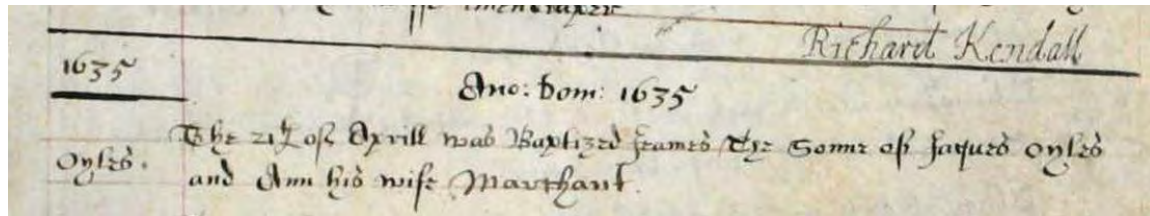 Richard Kendall
1635
Ano: Dom: 1635
The 21th of Aprill was Baptized Jeames The Sonne of Jaques Oyles
Oyles.
and Ann his wife Marchant.